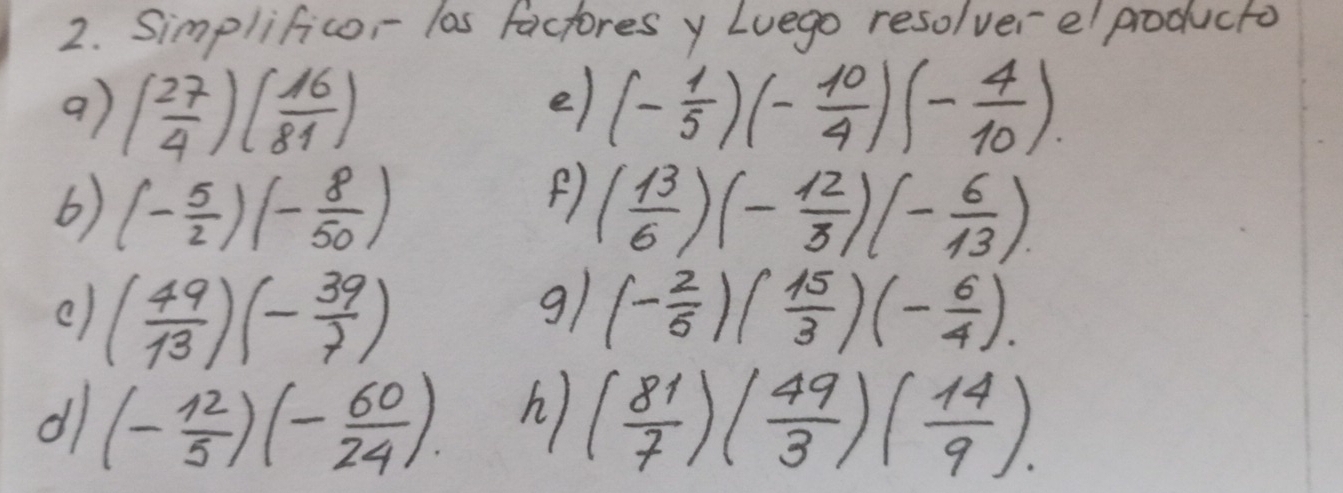 2. Simplificar los factores y Luego resolver el producto
a) (27/4)(16/81)
b) (-5/2)(-8/50)
c) (49/13)(-39/7)
d) (-12/5)(-60/24).
e) (-1/5)(-10/4)(-4/10).
f) (13/6)(-12/3)(-6/13).
g) (-2/5)(15/3)(-6/4).
h) (81/7)(49/3)(14/9).